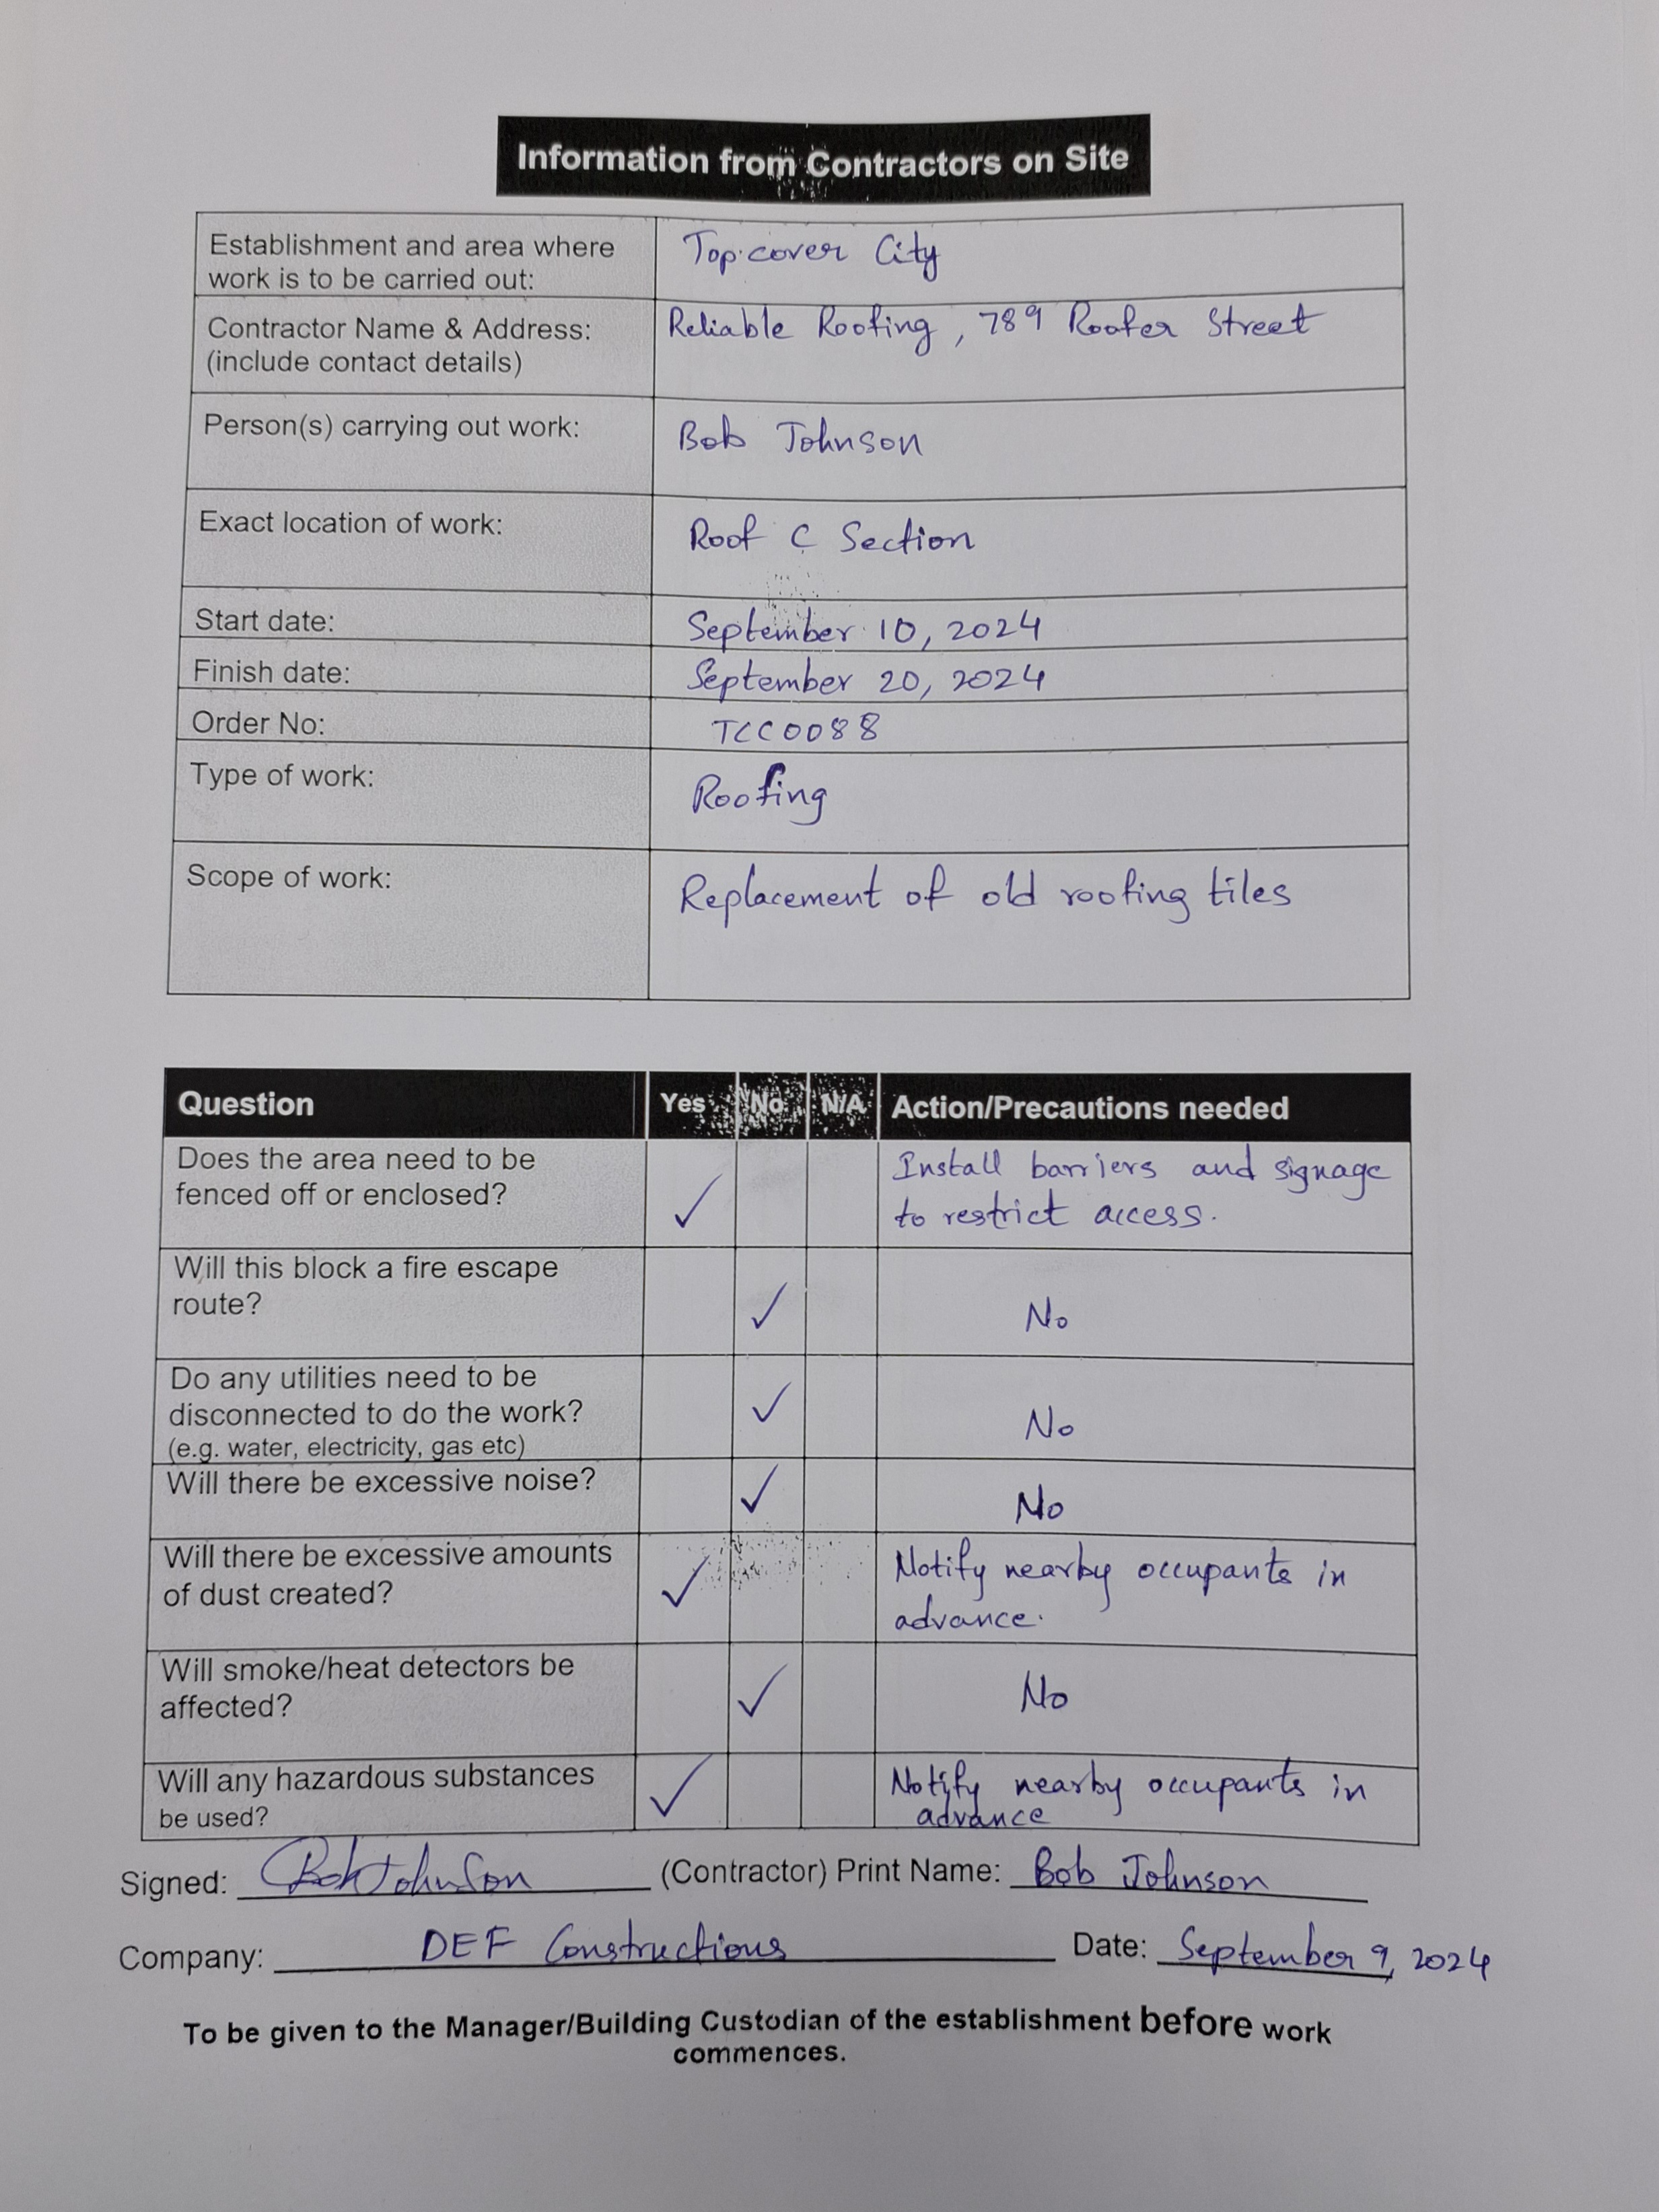 Information from Contractors on Site
Establishment and area where
work is to be carried out:
Top cover City
Contractor Name & Address:
(include contact details)
Reliable Roofing, 789 Roofer Street
Person(s) carrying out work:
Bob Johnson
Exact location of work:
Roof C Section
Start date:
September 10, 2024
Finish date:
September 20, 2024
Order No:
TCC0088
Type of work:
Roofing
Scope of work:
Replacement of old roofing tiles
Question Yes No N/A Action/Precautions needed
Does the area need to be
fenced off or enclosed?
✓
Install barriers and signage
to restrict access.
Will this block a fire escape
route?
✓
No
Do any utilities need to be
disconnected to do the work?
(e.g. water, electricity, gas etc)
✓
No
Will there be excessive noise?
✓
No
Will there be excessive amounts
of dust created?
✓
Notify nearby occupants in
advance.
Will smoke/heat detectors be
affected?
✓
No
Will any hazardous substances
be used?
✓
Notify nearby occupants in
advance
Signed: Bob Johnson (Contractor) Print Name: Bob Johnson
Company: DEF Constructions Date: September 9, 2024
To be given to the Manager/Building Custodian of the establishment before work
commences.